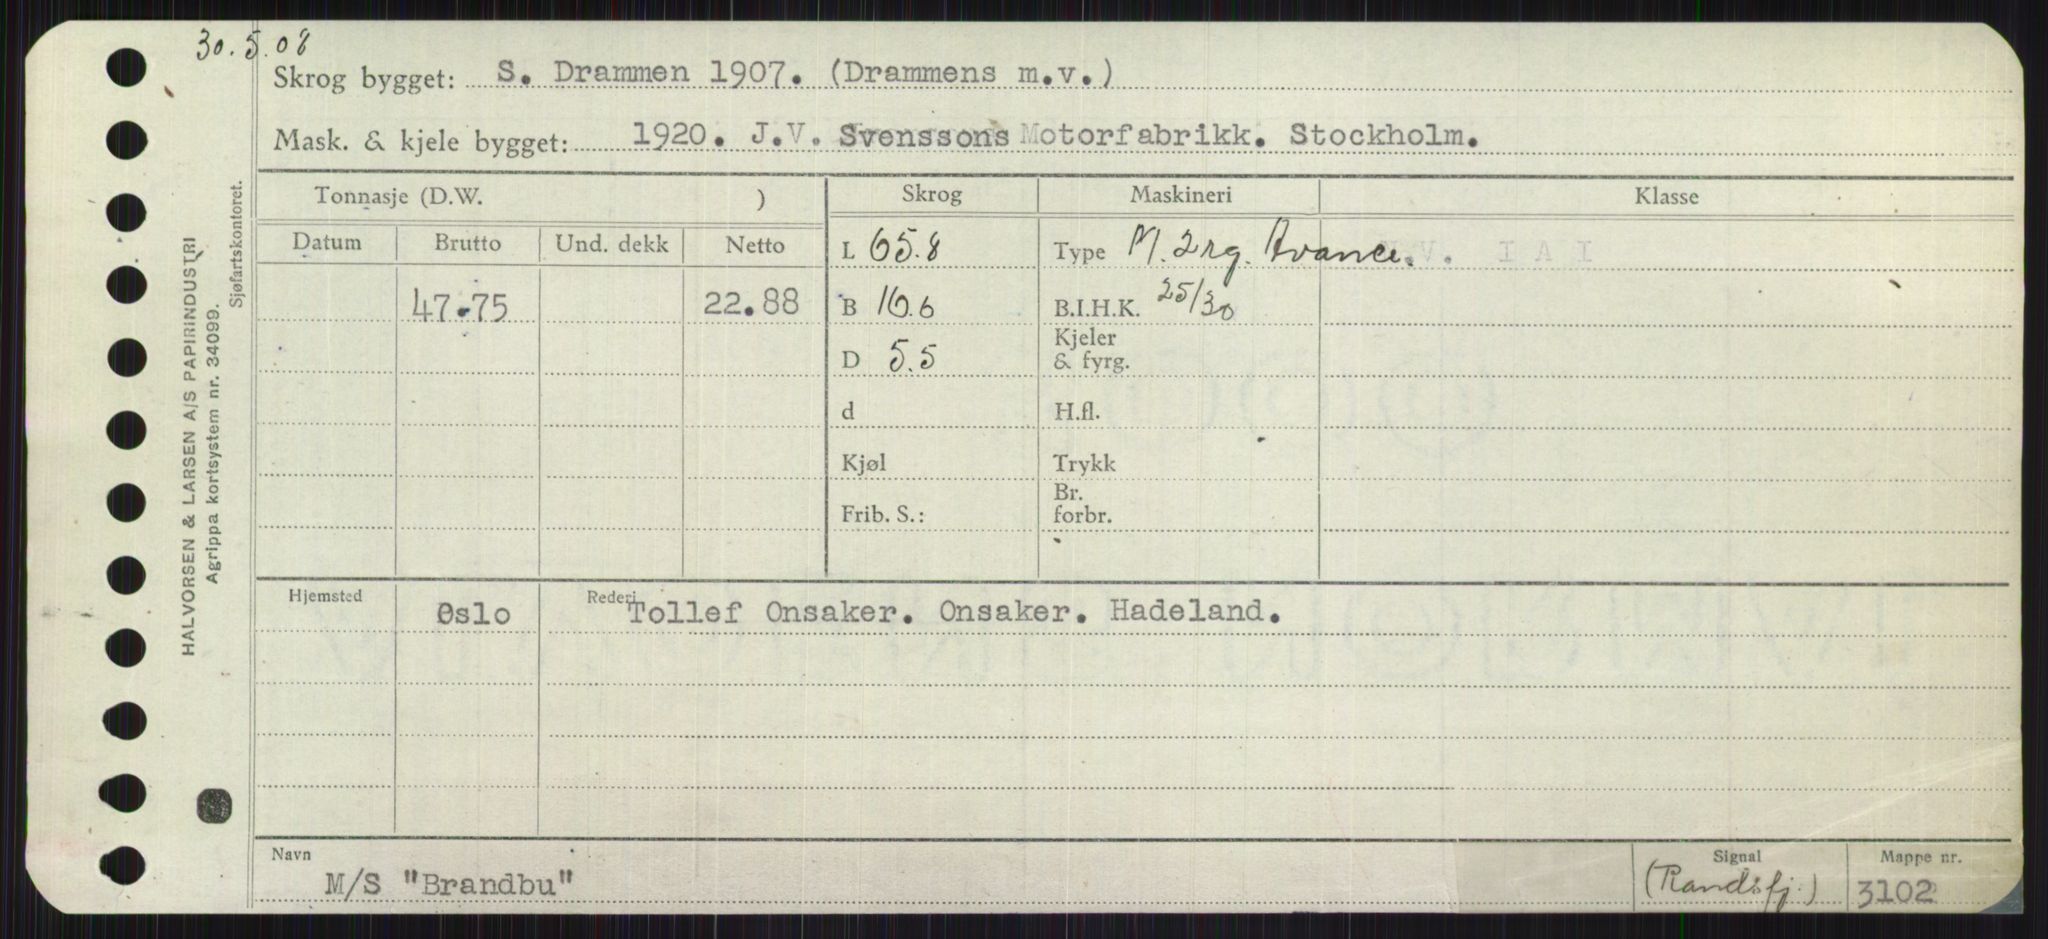 30.5.08
Skrog bygget: S. Drammen 1907. (Drammens m.v.)
Mask. & kjele bygget: 1920. J.V. Svenssons Motorfabrikk. Stockholm.
Tonnasje (D.W. ) Skrog Maskineri Klasse
Datum Brutto Und. dekk Netto L 65.8 Type M. 2rg. Avance.
47.75 22.88 B 16.6 B.I.H.K. 25/30
D 5.5 Kjeler & fyrg.
d H.fl.
Kjøl Trykk
Frib. S.: Br. forbr.
Hjemsted Oslo Rederi Tollef Onsaker. Onsaker. Hadeland.
Navn M/S "Brandbu" Signal (Randsfj.) Mappe nr. 3102
HALVORSEN & LARSEN A/S PAPIRINDUSTRI
Agrippa kortsystem nr. 34099.
Sjøfartskontoret.